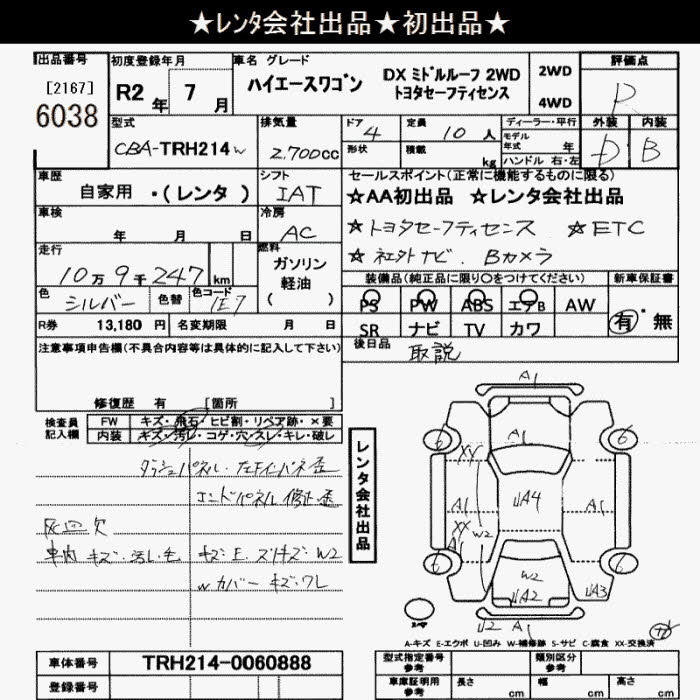 ★レンタ会社出品★初出品★
出品番号 初度登録年月 車名 グレード 評価点
[2167] R2年 7月 ハイエースワゴン DX ミドルルーフ 2WD 2WD R
6038 トヨタセーフティセンス 4WD
型式 排気量 ドア 4 定員 10人 ディーラー・平行 外装 内装
CBA-TRH214W 2,700cc 形状 積載 kg モデル年式 年 D B
ハンドル 右・左
車歴 シフト セールスポイント(正常に機能するものに限る)
自家用 ・(レンタ) IAT ★AA初出品 ★レンタ会社出品
車検 年 月 日 冷房 AC ☆トヨタセーフティセンス ☆ETC
走行 燃料 ☆社外ナビ. Bカメラ
10万9千247km ガソリン
軽油
( )
装備品(純正品に限り○をつけてください) 新車保証書
色 シルバー 色替 色コード 1E7 PS PW ABS エアB AW 有・無
R券 13,180 円 名変期限 月 日 SR ナビ TV カワ
注意事項申告欄(不具合内容等は具体的に記入して下さい) 後日品 取説
修復歴 有 [箇所 ]
検査員記入欄 FW キズ・飛石・ヒビ割・リペア跡・×要
内装 キズ・汚レ・コゲ・穴・スレ・キレ・破レ
エンドパネル 修正・歪
灰皿欠
車内 キズ・汚レ・モ
Wカバー キズ・ワレ
レンタ会社出品
A1
A1
6 6
XX
A1 UA4 A1
XX
A1 W2
6 6
W2
UA2 UA3
U2 A1
スペア
A-キズ E-エクボ U-凹み W-補修跡 S-サビ C-腐食 XX-交換済
車体番号 TRH214-0060888
登録番号
型式指定番号 参考 類別区分 参考
車庫証明用 参考 長さ cm 幅 cm 高さ cm